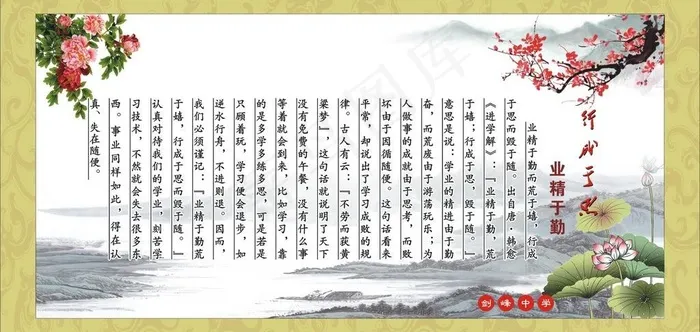 行成于思
业精于勤
业精于勤而荒于嬉，行成
于思而毁于随。出自唐·韩愈
《进学解》：『业精于勤，荒
于嬉；行成于思，毁于随。』
意思是说：学业的精进由于勤
奋，而荒废由于游荡玩乐；为
人做事的成就由于思考，而败
坏由于因循随便。这句话看来
平常，却说出了学习成败的规
律。古人有云：『不劳而获黄
粱梦』，这句话就说明了天下
没有免费的午餐，没有什么事
等着就会到来，比如学习，靠
的是多学多练多思，可是若是
只顾着玩，学习便会退步，如
逆水行舟，不进则退。因而，
我们必须谨记：『业精于勤荒
于嬉，行成于思而毁于随。』
认真对待我们的学业，刻苦学
习技术，不然就会失去很多东
西。事业同样如此，得在认
真、失在随便。
剑峰中学